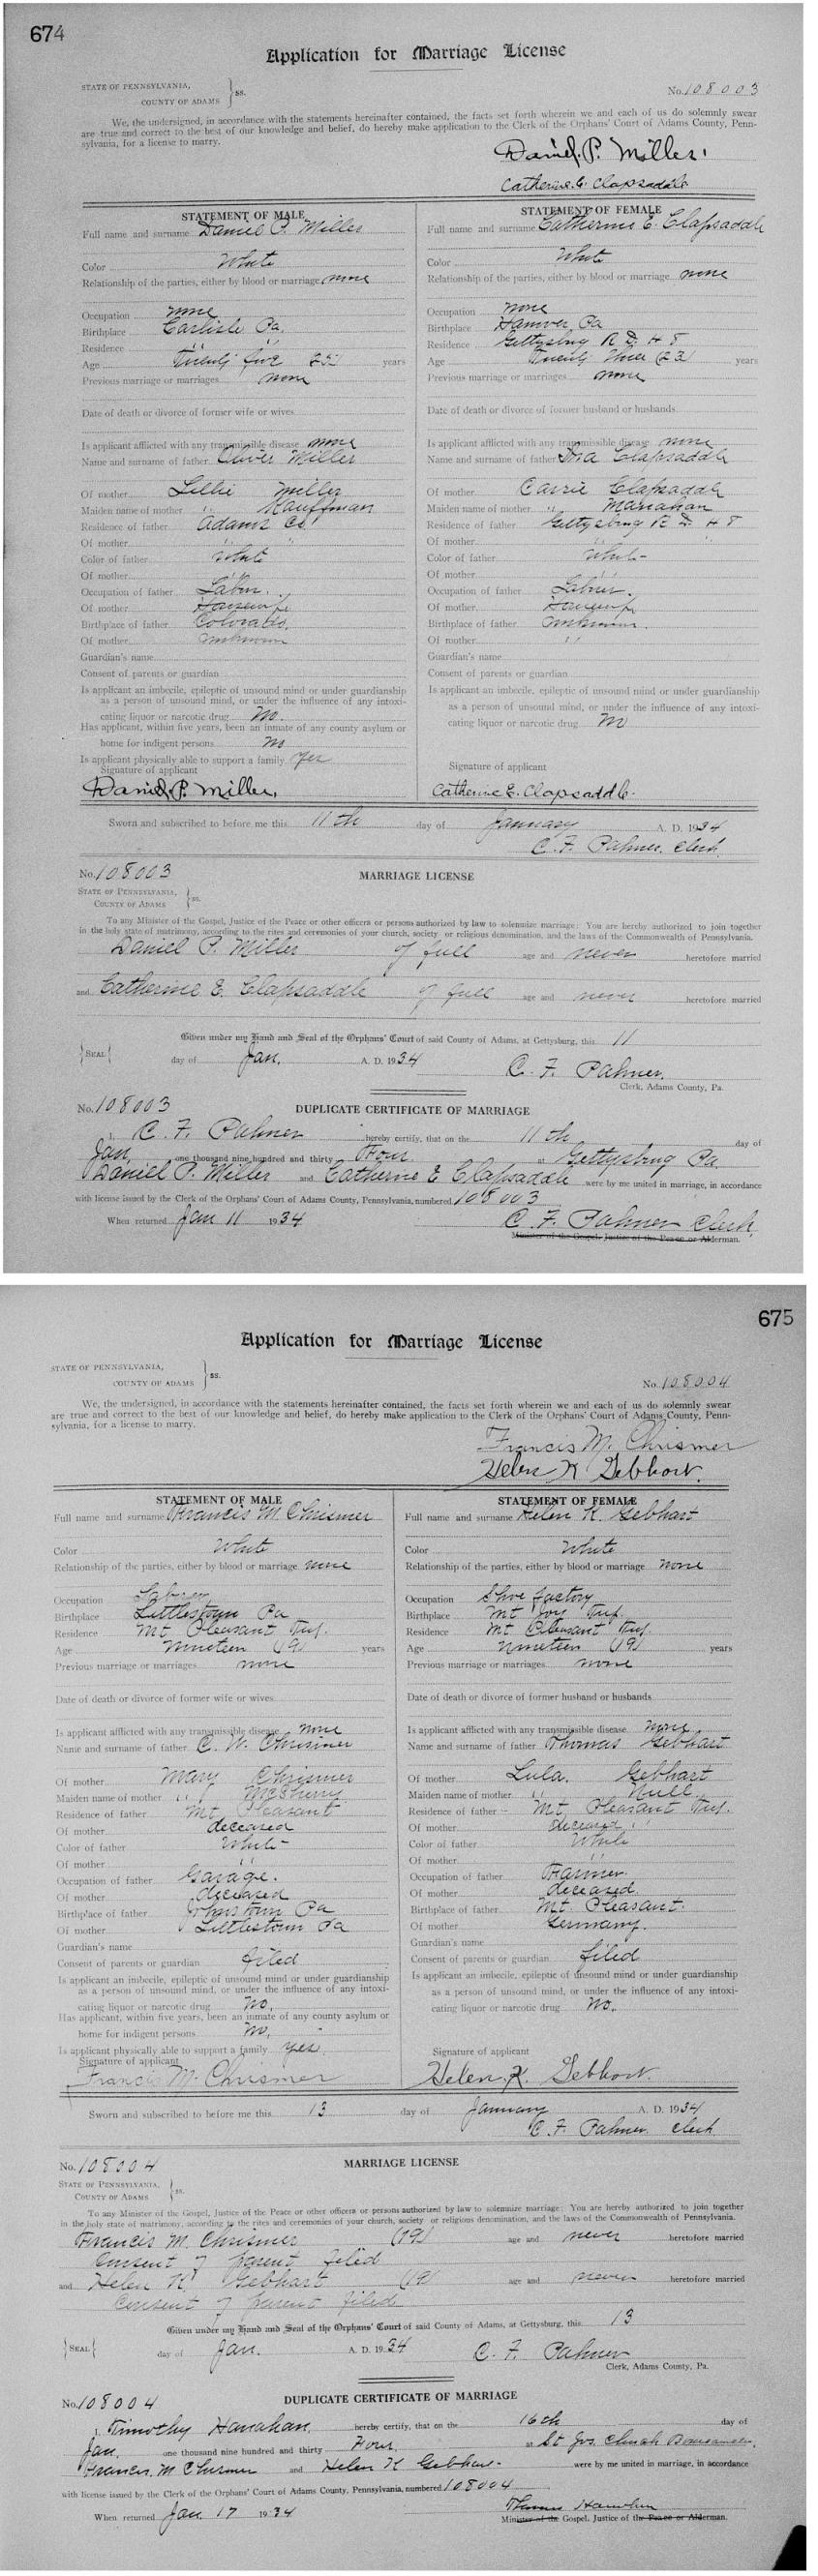 674
Application for Marriage License
STATE OF PENNSYLVANIA,
COUNTY OF ADAMS
ss.
No. 108003
We, the undersigned, in accordance with the statements hereinafter contained, the facts set forth wherein we and each of us do solemnly swear
are true and correct to the best of our knowledge and belief, do hereby make application to the Clerk of the Orphans' Court of Adams County, Penn-
sylvania, for a license to marry.
Daniel P. Miller.
Catherine E. Clapsaddle
STATEMENT OF MALE
Full name and surname Daniel P. Miller
Color White
Relationship of the parties, either by blood or marriage none
Occupation none
Birthplace Carlisle Pa.
Residence " "
Age Twenty five 25 years
Previous marriage or marriages none
Date of death or divorce of former wife or wives
Is applicant afflicted with any transmissible disease none
Name and surname of father Oliver Miller
Of mother Lillie Miller
Maiden name of mother " Kauffman
Residence of father Adams Co.
Of mother " "
Color of father White
Of mother "
Occupation of father Labor.
Of mother Housewife
Birthplace of father Colorado.
Of mother unknown
Guardian's name
Consent of parents or guardian
Is applicant an imbecile, epileptic of unsound mind or under guardianship
as a person of unsound mind, or under the influence of any intoxi-
cating liquor or narcotic drug no.
Has applicant, within five years, been an inmate of any county asylum or
home for indigent persons no
Is applicant physically able to support a family yes
Signature of applicant
Daniel P. Miller.
STATEMENT OF FEMALE
Full name and surname Catherine E. Clapsaddle
Color White
Relationship of the parties, either by blood or marriage none
Occupation none
Birthplace Hanover Pa
Residence Gettysburg R D. # 5
Age Twenty three (23) years
Previous marriage or marriages none
Date of death or divorce of former husband or husbands
Is applicant afflicted with any transmissible disease none
Name and surname of father Ira Clapsaddle
Of mother Carrie Clapsaddle
Maiden name of mother " Manahan
Residence of father Gettysburg R D. # 5
Of mother " "
Color of father White
Of mother "
Occupation of father Laborer.
Of mother Housewife
Birthplace of father unknown.
Of mother "
Guardian's name
Consent of parents or guardian
Is applicant an imbecile, epileptic of unsound mind, or under guardianship
as a person of unsound mind, or under the influence of any intoxi-
cating liquor or narcotic drug no
Signature of applicant
Catherine E. Clapsaddle.
Sworn and subscribed to before me this 11th day of January A. D. 1934
C. F. Palmer. Clerk.
No. 108003
MARRIAGE LICENSE
STATE OF PENNSYLVANIA,
COUNTY OF ADAMS
ss.
To any Minister of the Gospel, Justice of the Peace or other officers or persons authorized by law to solemnize marriage: You are hereby authorized to join together
in the holy state of matrimony, according to the rites and ceremonies of your church, society or religious denomination, and the laws of the Commonwealth of Pennsylvania.
Daniel P. Miller of full age and never heretofore married
and Catherine E. Clapsaddle of full age and never heretofore married
Given under my Hand and Seal of the Orphans' Court of said County of Adams, at Gettysburg, this 11
SEAL
day of Jan. A. D. 1934
C. F. Palmer.
Clerk, Adams County, Pa.
No. 108003
DUPLICATE CERTIFICATE OF MARRIAGE
I, C. F. Palmer hereby certify, that on the 11th day of
Jan, one thousand nine hundred and thirty Four at Gettysburg Pa.
Daniel P. Miller and Catherine E Clapsaddle were by me united in marriage, in accordance
with license issued by the Clerk of the Orphans' Court of Adams County, Pennsylvania, numbered 108003
When returned Jan 11 1934
C. F. Palmer Clerk.
Minister of the Gospel, Justice of the Peace or Alderman.
675
Application for Marriage License
STATE OF PENNSYLVANIA,
COUNTY OF ADAMS
ss.
No. 108004
We, the undersigned, in accordance with the statements hereinafter contained, the facts set forth wherein we and each of us do solemnly swear
are true and correct to the best of our knowledge and belief, do hereby make application to the Clerk of the Orphans' Court of Adams County, Penn-
sylvania, for a license to marry.
Francis M. Chrismer
Helen K. Gebhart.
STATEMENT OF MALE
Full name and surname Francis M. Chrismer
Color White
Relationship of the parties, either by blood or marriage none
Occupation Laborer
Birthplace Littlestown Pa
Residence Mt Pleasant Twp.
Age nineteen (19) years
Previous marriage or marriages none
Date of death or divorce of former wife or wives
Is applicant afflicted with any transmissible disease none
Name and surname of father C. W. Chrismer
Of mother Mary Chrismer
Maiden name of mother " McSherry
Residence of father Mt. Pleasant
Of mother deceased
Color of father White
Of mother "
Occupation of father Garage.
Of mother deceased
Birthplace of father Johnstown Pa
Of mother Littlestown Pa
Guardian's name
Consent of parents or guardian filed
Is applicant an imbecile, epileptic of unsound mind, or under guardianship
as a person of unsound mind, or under the influence of any intoxi-
cating liquor or narcotic drug No.
Has applicant, within five years, been an inmate of any county asylum or
home for indigent persons No.
Is applicant physically able to support a family yes.
Signature of applicant
Francis M. Chrismer
STATEMENT OF FEMALE
Full name and surname Helen K. Gebhart
Color White
Relationship of the parties, either by blood or marriage none
Occupation Shoe factory
Birthplace Mt Joy Twp.
Residence Mt Pleasant Twp.
Age nineteen (19) years
Previous marriage or marriages none
Date of death or divorce of former husband or husbands
Is applicant afflicted with any transmissible disease none
Name and surname of father Thomas Gebhart
Of mother Lula. Gebhart
Maiden name of mother " Null
Residence of father Mt. Pleasant Twp.
Of mother deceased
Color of father White
Of mother "
Occupation of father Farmer.
Of mother deceased
Birthplace of father Mt. Pleasant.
Of mother Germany.
Guardian's name
Consent of parents or guardian filed
Is applicant an imbecile, epileptic of unsound mind, or under guardianship
as a person of unsound mind, or under the influence of any intoxi-
cating liquor or narcotic drug No.
Signature of applicant
Helen K. Gebhart.
Sworn and subscribed to before me this 13 day of January A. D. 1934
C. F. Palmer. Clerk.
No. 108004
MARRIAGE LICENSE
STATE OF PENNSYLVANIA,
COUNTY OF ADAMS
ss.
To any Minister of the Gospel, Justice of the Peace or other officers or persons authorized by law to solemnize marriage: You are hereby authorized to join together
in the holy state of matrimony, according to the rites and ceremonies of your church, society or religious denomination, and the laws of the Commonwealth of Pennsylvania.
Francis M. Chrismer (19) age and never heretofore married
Consent of parent filed
and Helen K. Gebhart (19) age and never heretofore married
Consent of parent filed
Given under my Hand and Seal of the Orphans' Court of said County of Adams, at Gettysburg, this 13
SEAL
day of Jan. A. D. 1934
C. F. Palmer
Clerk, Adams County, Pa.
No. 108004
DUPLICATE CERTIFICATE OF MARRIAGE
I, Timothy Hanahan, hereby certify, that on the 16th day of
Jan. one thousand nine hundred and thirty Four. at St Jos. Church
Francis. M Chrismer and Helen K Gebhart were by me united in marriage, in accordance
with license issued by the Clerk of the Orphans' Court of Adams County, Pennsylvania, numbered 108004
When returned Jan. 17 1934
Minister of the Gospel, Justice of the Peace or Alderman.